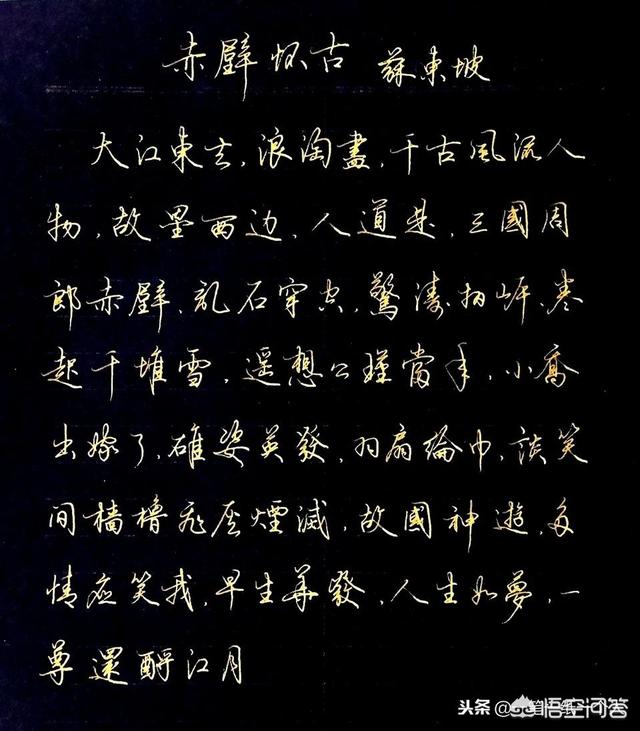 赤壁怀古 蘇東坡
大江東去,浪淘盡,千古風流人
物,故壘西边,人道是,三國周
郎赤壁,乱石穿空,驚濤拍岸,卷
起千堆雪,遥想公瑾當年,小喬
出嫁了,雄姿英發,羽扇綸巾,談笑
间檣櫓飛灰煙滅,故國神遊,多
情应笑我,早生華發,人生如夢,一
尊還酹江月
头条 @
悟空问答